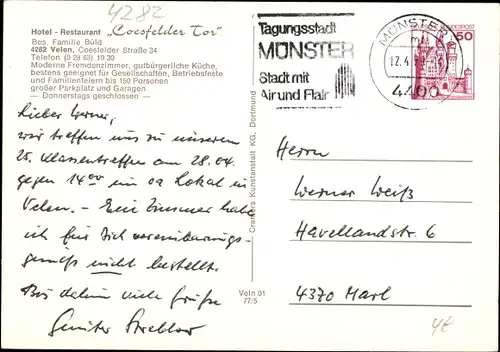 4282
Hotel - Restaurant „Coesfelder Tor"
Bes. Familie Büld
4282 Velen, Coesfelder Straße 24
Telefon (0 28 63) 19 39
Moderne Fremdenzimmer, gutbürgerliche Küche,
bestens geeignet für Gesellschaften, Betriebsfeste
und Familienfeiern bis 150 Personen
großer Parkplatz und Garagen
— Donnerstags geschlossen —
Lieber Werner,
wir treffen uns zu unserem
25. Klassentreffen am 28.04.
gegen 14.00 im oa Lokal in
Velen. - Ein Zimmer habe
ich für Dich vereinbarungs-
gemäß nicht bestellt.
Bis dahin viele Grüße
Günter
Cramers Kunstanstalt KG, Dortmund
Veln 01
77/5
Tagungsstadt
MÜNSTER
Stadt mit
Air und Flair
MÜNSTER
12.4.
4400
50
Herrn
Werner Weiß
Havellandstr. 6
4370 Marl